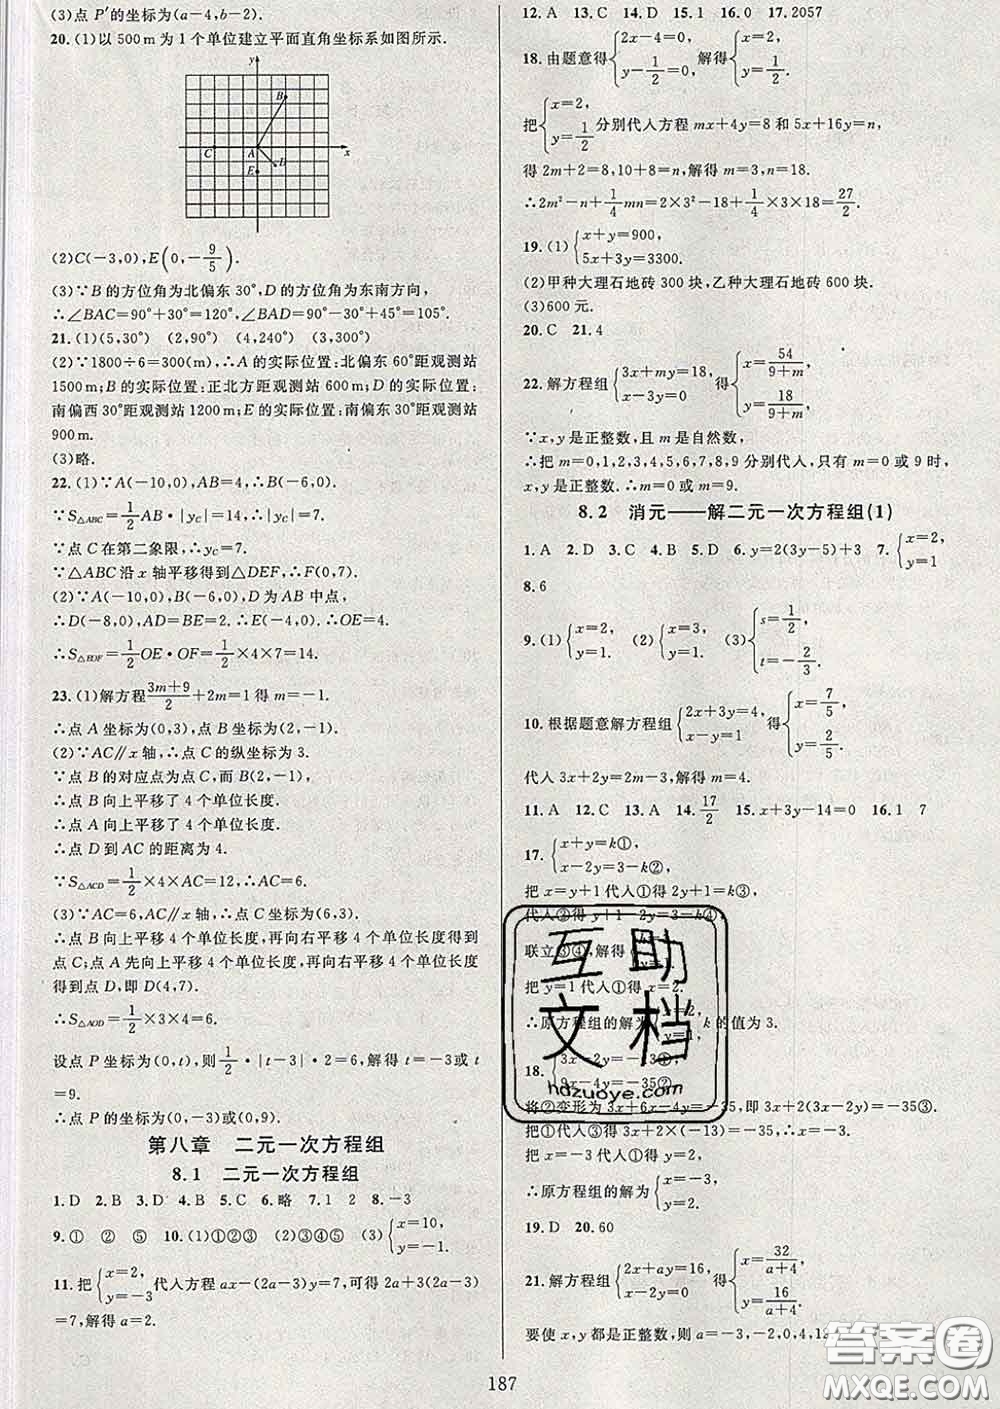 (3)点 P′的坐标为(a-4,b-2).
20.(1)以 500 m 为 1 个单位建立平面直角坐标系如图所示.
y
B
C
A
D
x
E
(2)C(-3,0),E(0,-9/5).
(3)∵B 的方位角为北偏东 30°,D 的方位角为东南方向,
∴∠BAC=90°+30°=120°,∠BAD=90°-30°+45°=105°.
21.(1)(5,30°) (2,90°) (4,240°) (3,300°)
(2)∵1800÷6=300(m),∴A 的实际位置:北偏东 60°距观测站
1500 m;B 的实际位置:正北方距观测站 600 m;D 的实际位置:
南偏西 30°距观测站 1200 m;E 的实际位置:南偏东 30°距观测站
900 m.
(3)略.
22.(1)∵A(-10,0),AB=4,∴B(-6,0).
∵S△ABC=1/2 AB·|yC|=14,∴|yC|=7.
∵点 C 在第二象限,∴yC=7.
∵△ABC 沿 x 轴平移得到△DEF,∴F(0,7).
(2)∵A(-10,0),B(-6,0),D 为 AB 中点,
∴D(-8,0),AD=BE=2.∴E(-4,0).∴OE=4.
∴S△EOF=1/2 OE·OF=1/2×4×7=14.
23.(1)解方程(3m+9)/2+2m=1 得 m=-1.
∴点 A 坐标为(0,3),点 B 坐标为(2,-1).
(2)∵AC∥x 轴,∴点 C 的纵坐标为 3.
∵点 B 的对应点为点 C,而 B(2,-1),
∴点 B 向上平移了 4 个单位长度.
∴点 A 向上平移了 4 个单位长度.
∴点 D 到 AC 的距离为 4.
∵S△ACD=1/2×4×AC=12,∴AC=6.
(3)∵AC=6,AC∥x 轴,∴点 C 坐标为(6,3).
∴点 B 向上平移 4 个单位长度,再向右平移 4 个单位长度得到
点 C;点 A 先向上平移 4 个单位长度,再向右平移 4 个单位长度
得到点 D,即 D(4,7).
∴S△AOD=1/2×3×4=6.
设点 P 坐标为(0,t),则1/2·|t-3|·2=6,解得 t=-3或 t
=9.
∴点 P 的坐标为(0,-3)或(0,9).
第八章 二元一次方程组
8.1 二元一次方程组
1.D 2.B 3.D 4.B 5.C 6.略 7.1 2 8.-3
9.① ② ⑤ 10.(1)①②③ (2)③④⑤ (3){x=10, y=-1.
11.把{x=2, y=-3 代入方程 ax-(2a-3)y=7,可得 2a+3(2a-3)
=7,解得 a=2.
12.A 13.C 14.D 15.1 16.0 17.2057
18.由题意得{2x-4=0, y-1/2=0, 解得{x=2, y=1/2.
把{x=2, y=1/2 分别代入方程 mx+4y=8 和 5x+16y=n,
得 2m+2=8,10+8=n,解得 m=3,n=18.
∴2m²-n+1/4 mn=2×3²-18+1/4×3×18=27/2.
19.(1){x+y=900, 5x+3y=3300.
(2)甲种大理石地砖 300 块,乙种大理石地砖 600块.
(3)600 元.
20.C 21.4
22.解方程组{3x+my=18, x-3y=0 得{x=54/(9+m), y=18/(9+m).
∵x,y 是正整数,且 m 是自然数,
∴把 m=0,1,2,3,4,5,6,7,8,9 分别代入,只有 m=0 或 9 时,
x,y 是正整数.∴m=0 或 m=9.
8.2 消元——解二元一次方程组(1)
1.A 2.D 3.C 4.B 5.D 6.y=2(3y-5)+3 7.{x=2, y=1
8.6
9.(1){x=2, y=1. (2){x=3, y=1. (3){s=1/2, t=-2/3.
10.根据题意解方程组{2x+3y=4, x-y=1 得{x=7/5, y=2/5.
代入 3x+2y=2m-3,解得 m=4.
11.A 12.C 13.A 14.17/2 15.x+3y-14=0 16.1 7
17.{x+y=k①, x-2y=3-k②,
把 x=y+1 代入①得 2y+1=k③,
代入②得 y+1-2y=3-k④,
联立③④,解得
y=1.
把 y=1 代入①得 x=2.
∴原方程组的解为{x=2, y=1. k 的值为 3.
18.{3x-2y=-13①, 9x-4y=-35②.
将②变形为 3x+6x-4y=-35,即 3x+2(3x-2y)=-35③.
把①代入③得 3x+2×(-13)=-35,∴x=-3.
把
∴原方程组的解为{x=-3, y=2.
19.D 20.60
21.解方程组{2x+ay=16, x-2y=0 得{x=32/(a+4), y=16/(a+4).
要使 x,y 都是正整数,则 a=-3,-2,0,4,12
187
互助文档
hdzuoye.com
答案圈
MXQE.COM